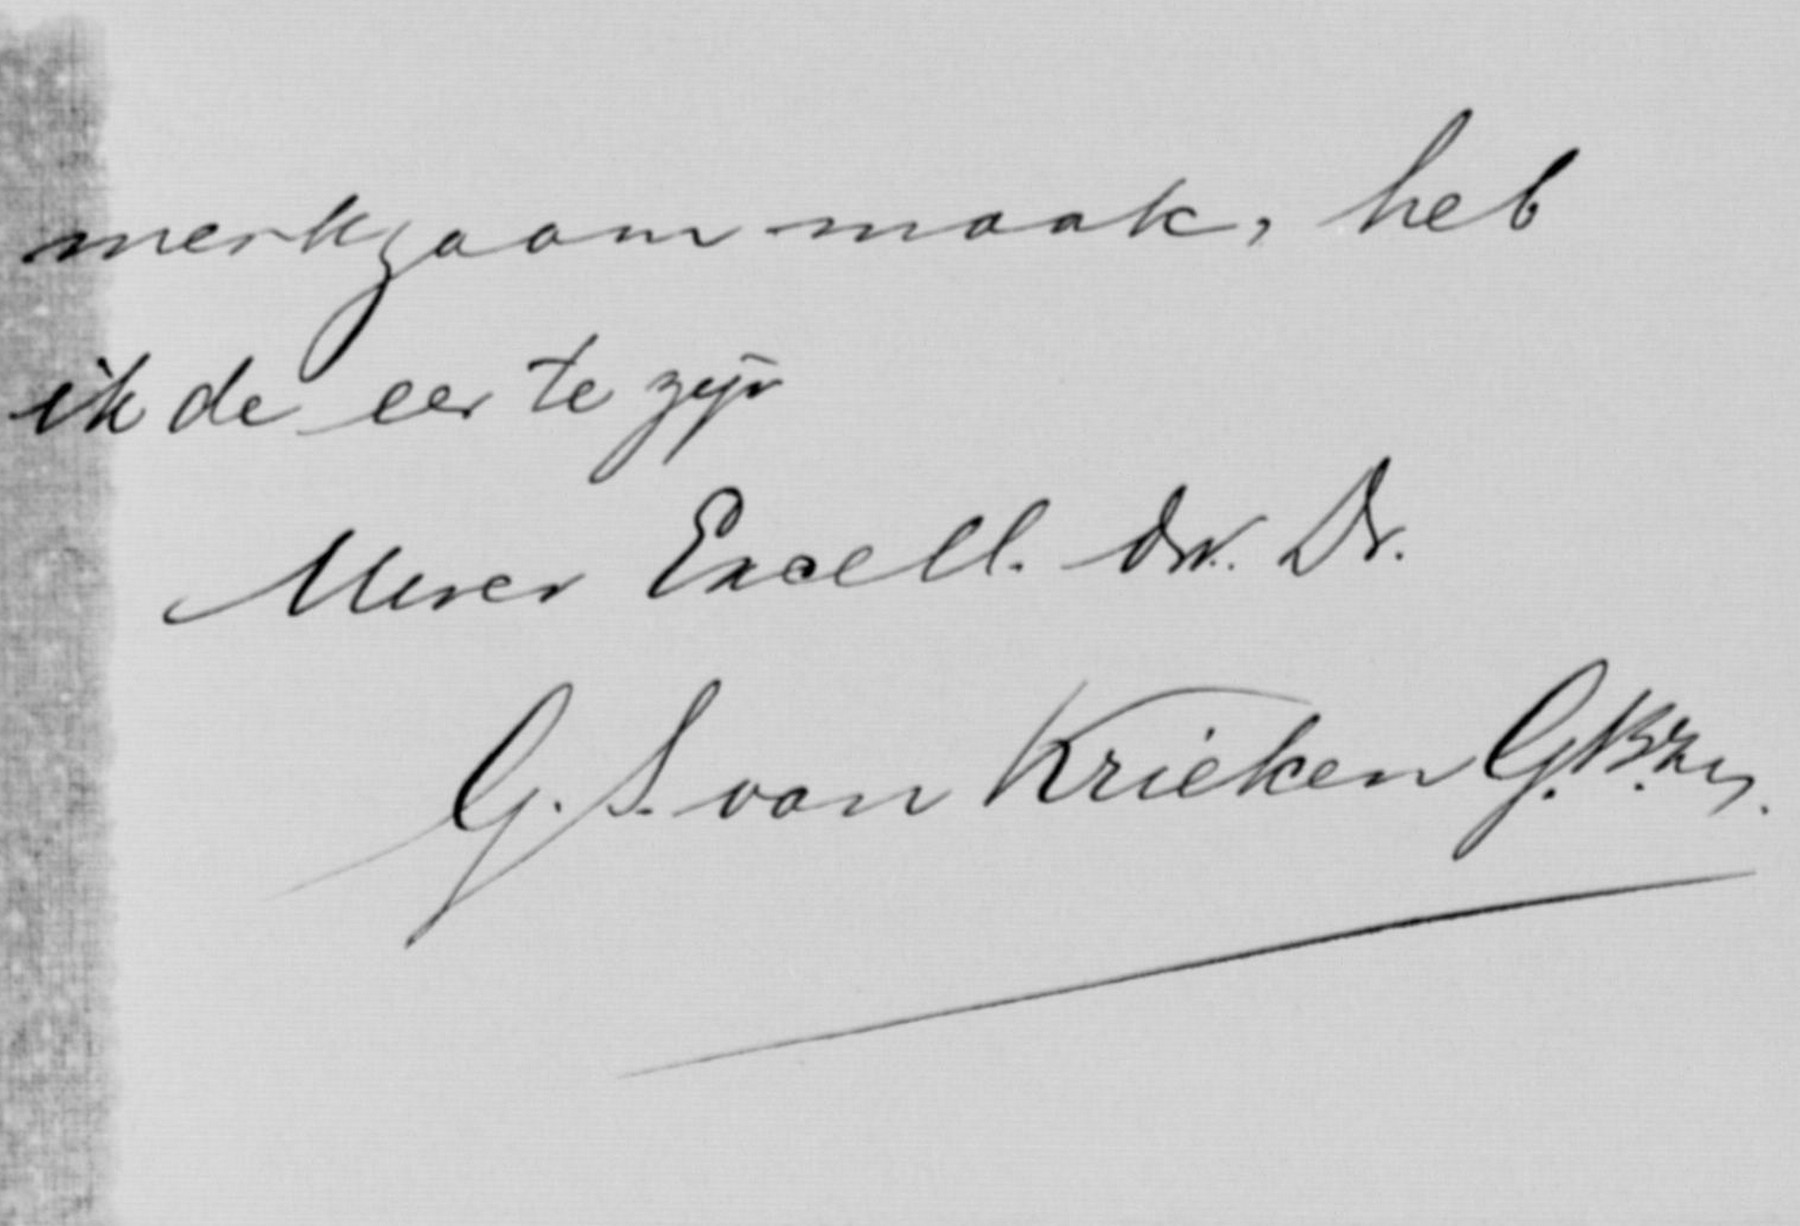 merkzaam maak, heb
ik de eer te zijn
Uwer Excell. dw. Dr.
G. S. van Krieken G.Bzn.